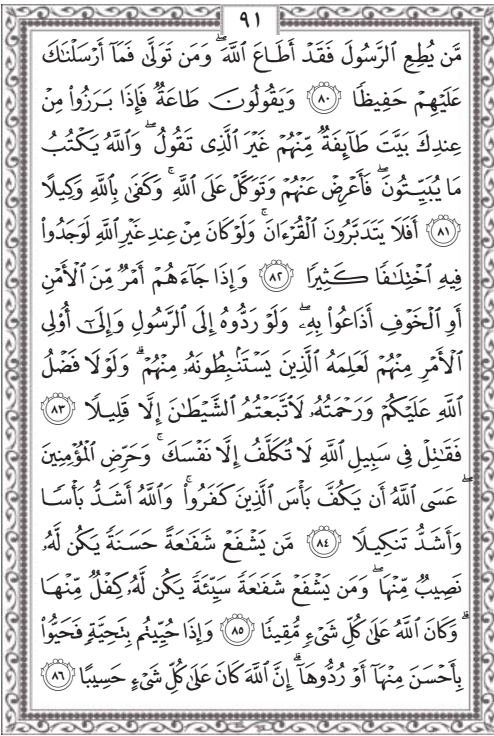 ٩١
مَّن يُطِعِ الرَّسُولَ فَقَدْ أَطَاعَ اللَّهَ ۖ وَمَن تَوَلَّىٰ فَمَا أَرْسَلْنَاكَ
عَلَيْهِمْ حَفِيظًا ﴿٨٠﴾ وَيَقُولُونَ طَاعَةٌ فَإِذَا بَرَزُوا مِنْ
عِندِكَ بَيَّتَ طَائِفَةٌ مِّنْهُمْ غَيْرَ الَّذِي تَقُولُ ۖ وَاللَّهُ يَكْتُبُ
مَا يُبَيِّتُونَ ۖ فَأَعْرِضْ عَنْهُمْ وَتَوَكَّلْ عَلَى اللَّهِ ۚ وَكَفَىٰ بِاللَّهِ وَكِيلًا
﴿٨١﴾ أَفَلَا يَتَدَبَّرُونَ الْقُرْءَانَ ۚ وَلَوْ كَانَ مِنْ عِندِ غَيْرِ اللَّهِ لَوَجَدُوا
فِيهِ اخْتِلَافًا كَثِيرًا ﴿٨٢﴾ وَإِذَا جَاءَهُمْ أَمْرٌ مِّنَ الْأَمْنِ
أَوِ الْخَوْفِ أَذَاعُوا بِهِ ۖ وَلَوْ رَدُّوهُ إِلَى الرَّسُولِ وَإِلَىٰ أُولِي
الْأَمْرِ مِنْهُمْ لَعَلِمَهُ الَّذِينَ يَسْتَنبِطُونَهُ مِنْهُمْ ۗ وَلَوْلَا فَضْلُ
اللَّهِ عَلَيْكُمْ وَرَحْمَتُهُ لَاتَّبَعْتُمُ الشَّيْطَانَ إِلَّا قَلِيلًا ﴿٨٣﴾
فَقَاتِلْ فِي سَبِيلِ اللَّهِ لَا تُكَلَّفُ إِلَّا نَفْسَكَ ۚ وَحَرِّضِ الْمُؤْمِنِينَ
ۖ عَسَى اللَّهُ أَن يَكُفَّ بَأْسَ الَّذِينَ كَفَرُوا ۚ وَاللَّهُ أَشَدُّ بَأْسًا
وَأَشَدُّ تَنكِيلًا ﴿٨٤﴾ مَّن يَشْفَعْ شَفَاعَةً حَسَنَةً يَكُن لَّهُ
نَصِيبٌ مِّنْهَا ۖ وَمَن يَشْفَعْ شَفَاعَةً سَيِّئَةً يَكُن لَّهُ كِفْلٌ مِّنْهَا
ۗ وَكَانَ اللَّهُ عَلَىٰ كُلِّ شَيْءٍ مُّقِيتًا ﴿٨٥﴾ وَإِذَا حُيِّيتُم بِتَحِيَّةٍ فَحَيُّوا
بِأَحْسَنَ مِنْهَا أَوْ رُدُّوهَا ۗ إِنَّ اللَّهَ كَانَ عَلَىٰ كُلِّ شَيْءٍ حَسِيبًا ﴿٨٦﴾